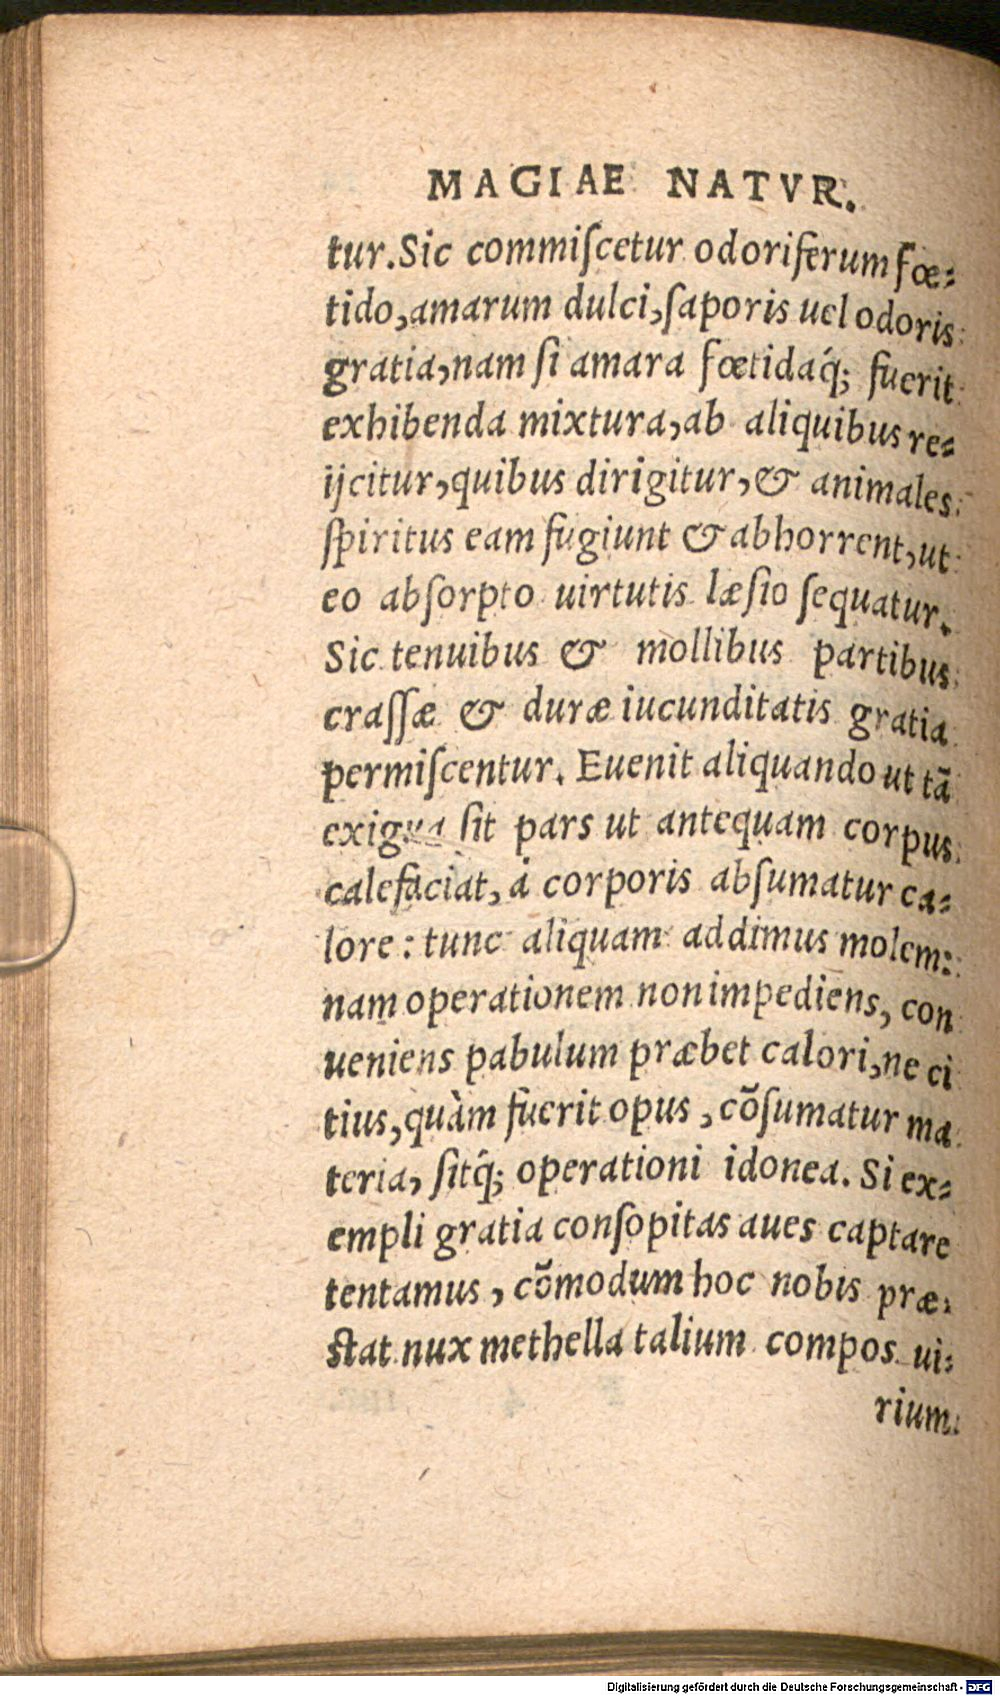 MAGIAE NATVR.
tur. Sic commiſcetur odoriferum fœ-
tido, amarum dulci, ſaporis uel odoris
gratia, nam ſi amara fœtidaq́; fuerit
exhibenda mixtura, ab aliquibus re-
ijcitur, quibus dirigitur, & animales
ſpiritus eam fugiunt & abhorrent, ut
eo abſorpto uirtutis læſio ſequatur.
Sic tenuibus & mollibus partibus
craſſæ & duræ iucunditatis gratia
permiſcentur. Euenit aliquando ut tā
exigua ſit pars ut antequam corpus
calefaciat, à corporis abſumatur ca-
lore: tunc aliquam addimus molem:
nam operationem non impediēns, con
ueniens pabulum præbet calori, ne ci
tius, quàm fuerit opus, cōſumatur ma
teria, ſitq́; operationi idonea. Si ex-
empli gratia conſopitas aues captare
tentamus, cōmodum hoc nobis præ-
ſtat nux methella talium compos ui-
rium.
Digitalisierung gefördert durch die Deutsche Forschungsgemeinschaft - DFG